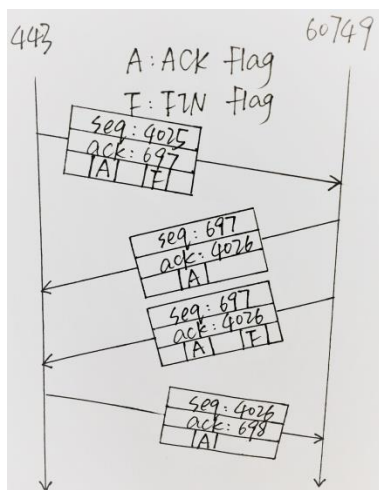 443
60749
A: ACK flag
F: FIN flag
seq: 4025
ack: 697
A F
seq: 697
ack: 4026
A
seq: 697
ack: 4026
A F
seq: 4026
ack: 698
A